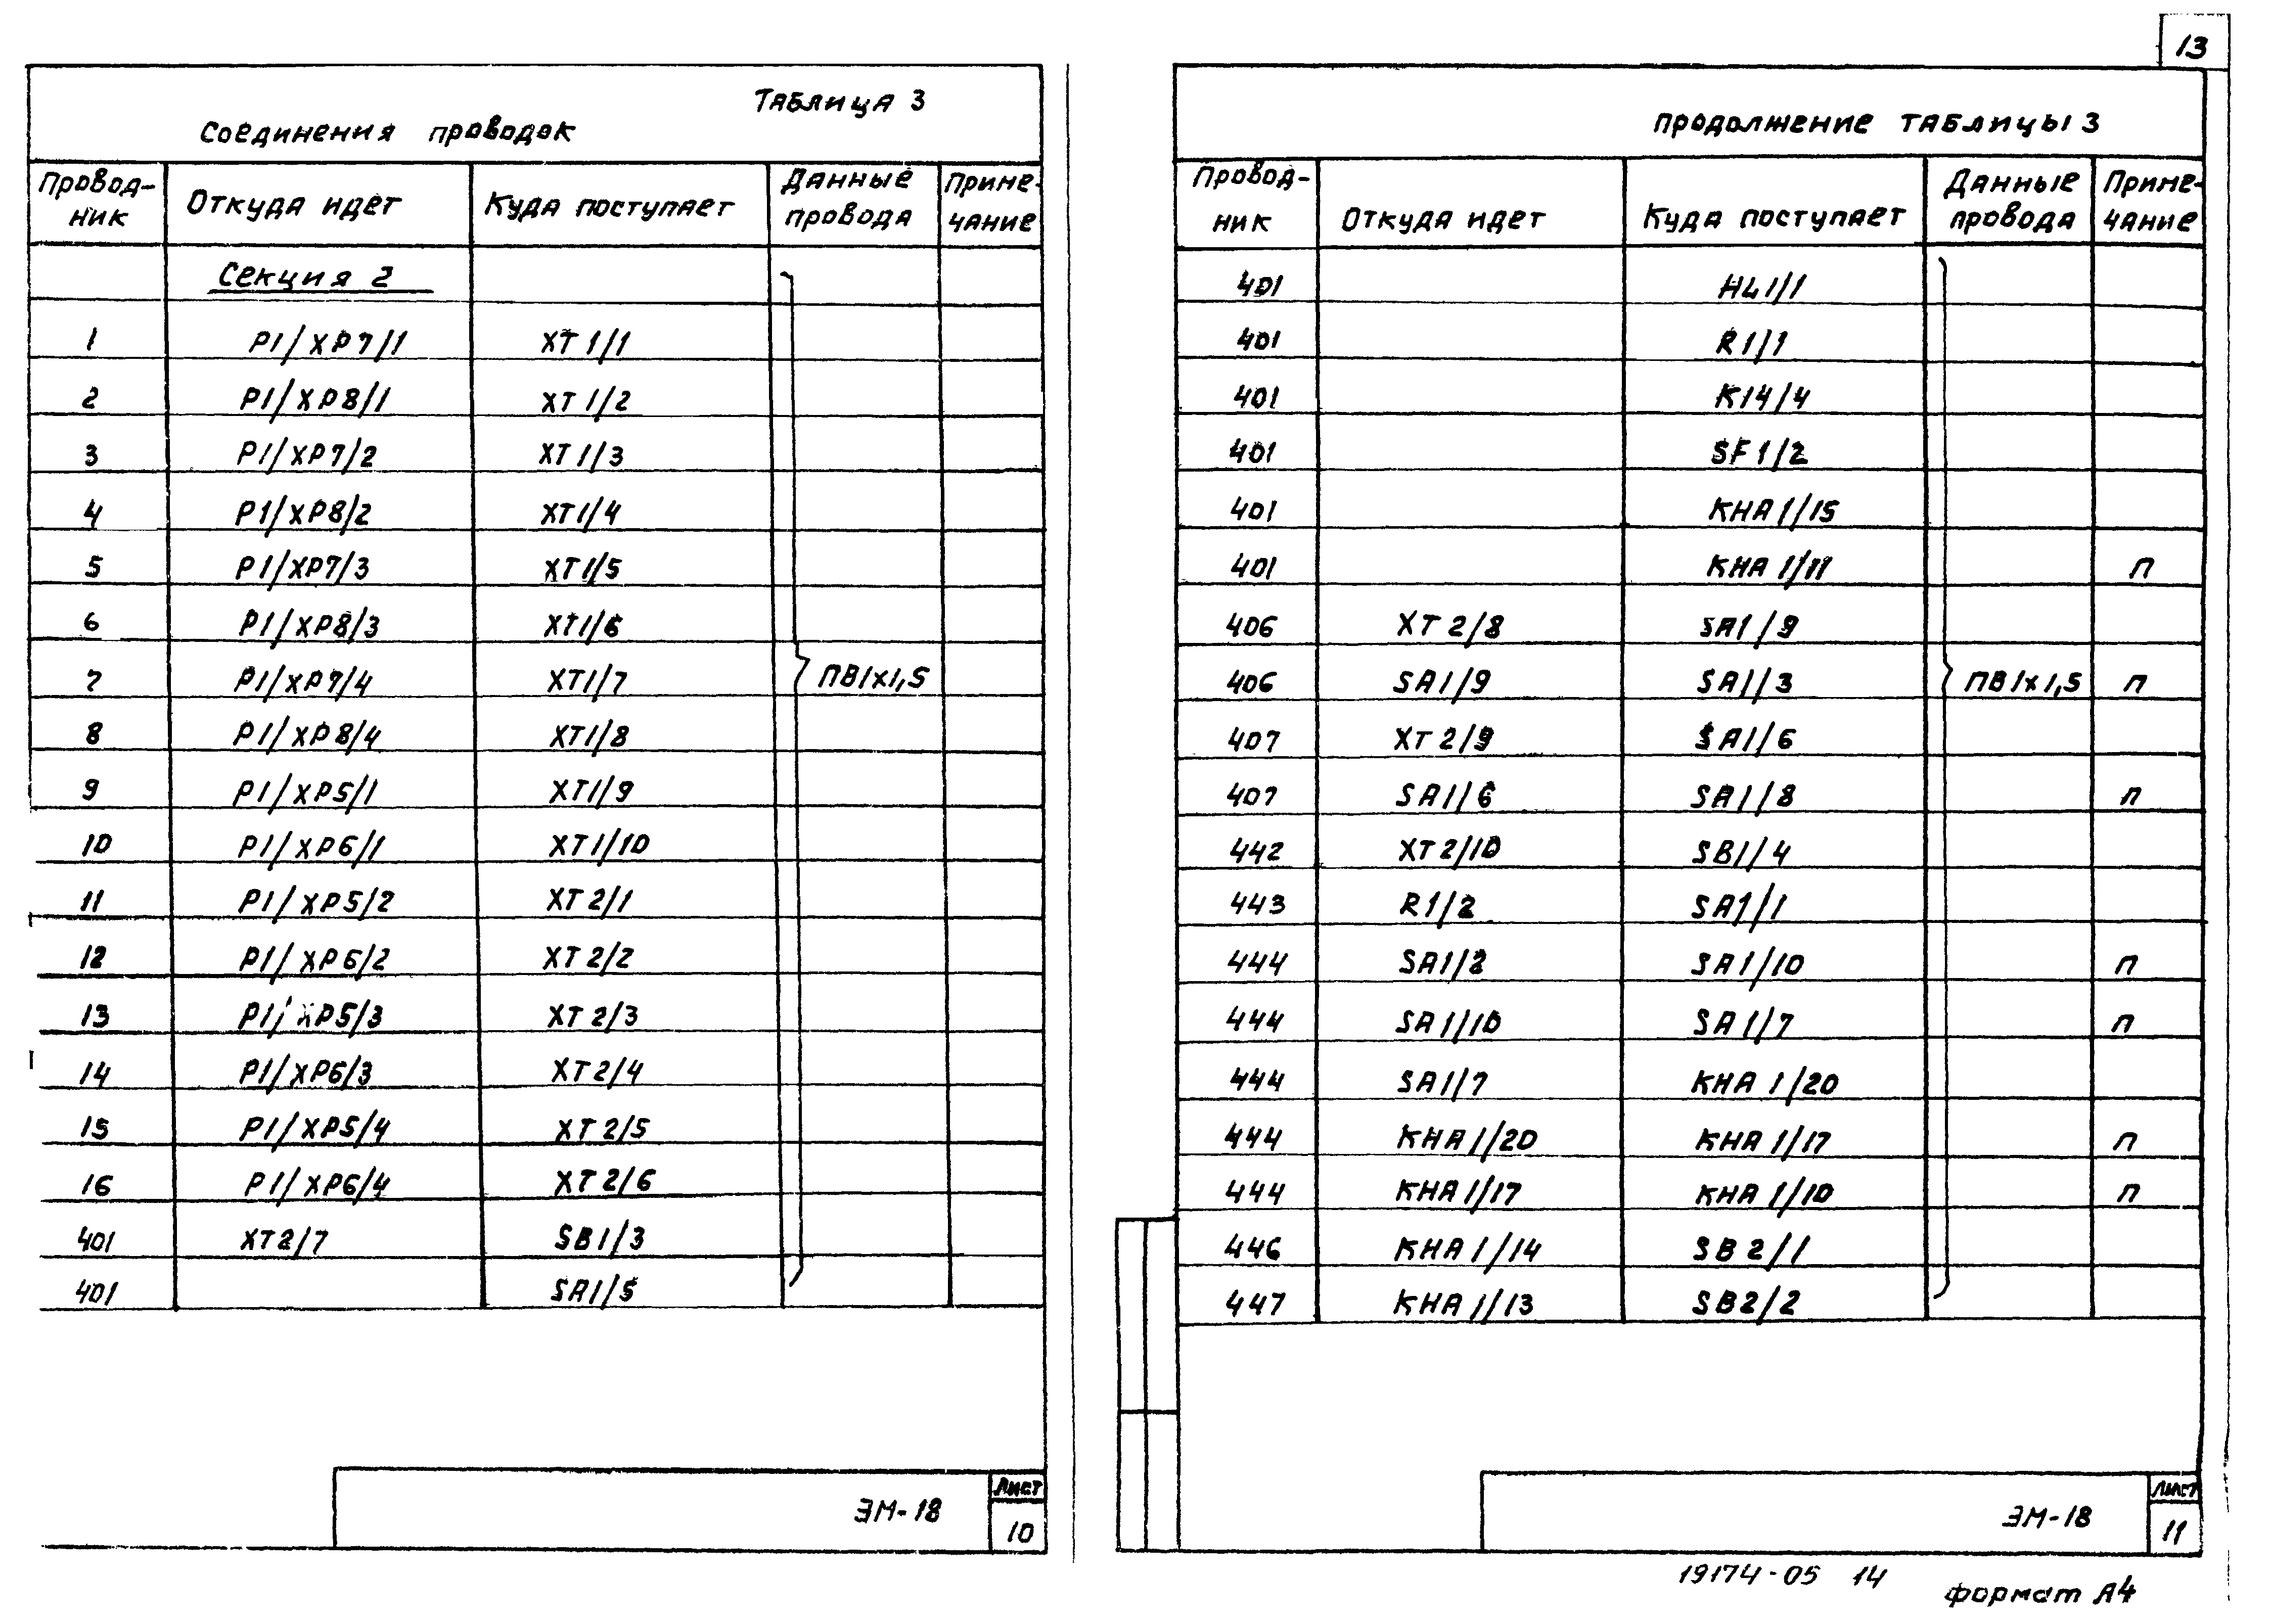 13
Таблица 3
Соединения проводок
Провод-
ник
Откуда идет
Куда поступает
Данные
провода
Приме-
чание
Секция 2
1 P1/XP7/1 XT1/1
2 P1/XP8/1 XT1/2
3 P1/XP7/2 XT1/3
4 P1/XP8/2 XT1/4
5 P1/XP7/3 XT1/5
6 P1/XP8/3 XT1/6
7 P1/XP7/4 XT1/7 ПВ1х1,5
8 P1/XP8/4 XT1/8
9 P1/XP5/1 XT1/9
10 P1/XP6/1 XT1/10
11 P1/XP5/2 XT2/1
12 P1/XP6/2 XT2/2
13 P1/XP5/3 XT2/3
14 P1/XP6/3 XT2/4
15 P1/XP5/4 XT2/5
16 P1/XP6/4 XT2/6
401 XT2/7 SB1/3
401 SA1/5
ЭМ-18
Лист
10
продолжение таблицы 3
Провод-
ник
Откуда идет
Куда поступает
Данные
провода
Приме-
чание
401 HL1/1
401 R1/1
401 K14/4
401 SF1/2
401 KHA1/15
401 KHA1/11 п
406 XT2/8 SA1/9
406 SA1/9 SA1/3 ПВ1х1,5 п
407 XT2/9 SA1/6
407 SA1/6 SA1/8 п
442 XT2/10 SB1/4
443 R1/2 SA1/1
444 SA1/2 SA1/10 п
444 SA1/10 SA1/7 п
444 SA1/7 KHA1/20
444 KHA1/20 KHA1/17 п
444 KHA1/17 KHA1/10 п
446 KHA1/14 SB2/1
447 KHA1/13 SB2/2
ЭМ-18
Лист
11
19174-05 14
формат А4